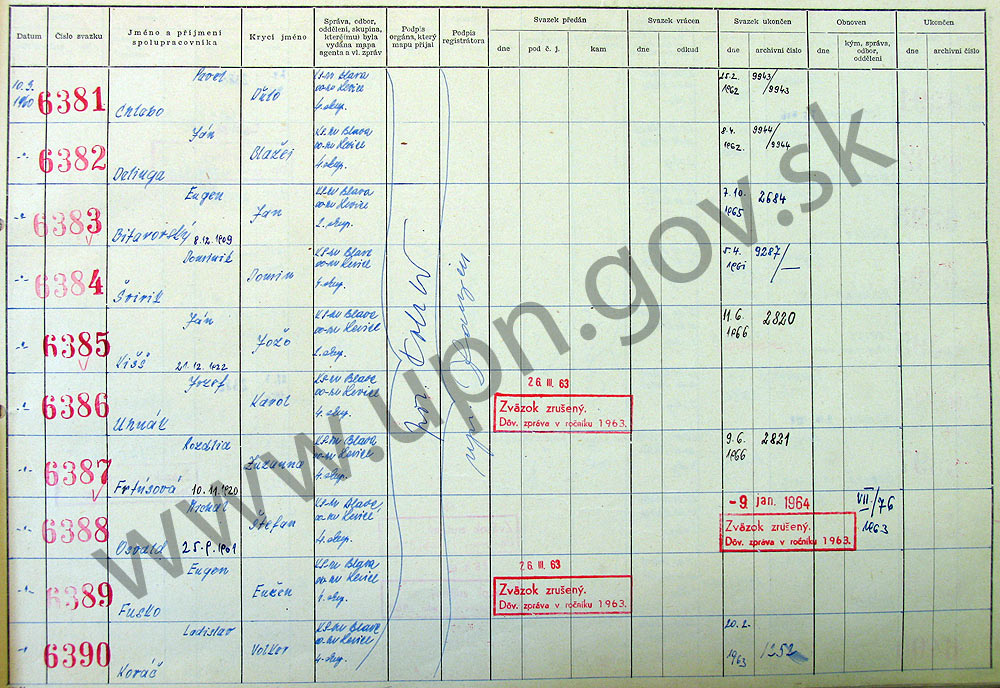 Datum
Číslo svazku
Jméno a příjmení
spolupracovníka
Krycí jméno
Správa, odbor,
oddělení, skupina,
které(mu) byla
vydána mapa
agenta a vl. zpráv
Podpis
orgána, který
mapu přijal
Podpis
registrátora
Svazek předán
dne
pod č. j.
kam
Svazek vrácen
dne
odkud
Svazek ukončen
dne
archivní číslo
Obnoven
dne
kým, správa,
odbor,
oddělení
Ukončen
dne
archivní číslo
10.9.
1960
6381
Pavel
Chlabo
KS-MV Blava
OO-MV Levice
4. skup.
25.2.
1962
9943/
/9943
6382
Ján
Delinga
Blažej
KS-MV Blava
OO-MV Levice
4. skup.
8.4.
1962
9944/
/9944
6383
Eugen
Bitarovský
8.12.1909
Jan
KS-MV Blava
OO-MV Levice
2. skup.
7.10.
1965
2684
6384
Dominik
Širik
KS-MV Blava
OO-MV Levice
4. skup.
5.4.
1961
9287/
6385
Ján
Višš
21.12.1922
Jožo
KS-MV Blava
OO-MV Levice
2. skup.
11.6.
1966
2820
6386
Jozef
Uhnák
Karol
KS-MV Blava
OO-MV Levice
4. skup.
26. III. 63
Zväzok zrušený.
Dôv. zpráva v ročníku 1963.
6387
Rozália
Frtúsová
10.11.1920
Zuzanna
KS-MV Blava
OO-MV Levice
4. skup.
9.6.
1966
2821
6388
Michal
Osvald
25.9.1901
Štefan
KS-MV Blava
OO-MV Levice
4. skup.
-9. jan. 1964
Zväzok zrušený.
Dôv. zpráva v ročníku 1963.
VII/76
1963
6389
Eugen
Fusko
Eužen
KS-MV Blava
OO-MV Levice
4. skup.
26. III. 63
Zväzok zrušený.
Dôv. zpráva v ročníku 1963.
6390
Ladislav
Koráš
Volkor
KS-MV Blava
OO-MV Levice
4. skup.
20.2.
1963
1252
www.upn.gov.sk